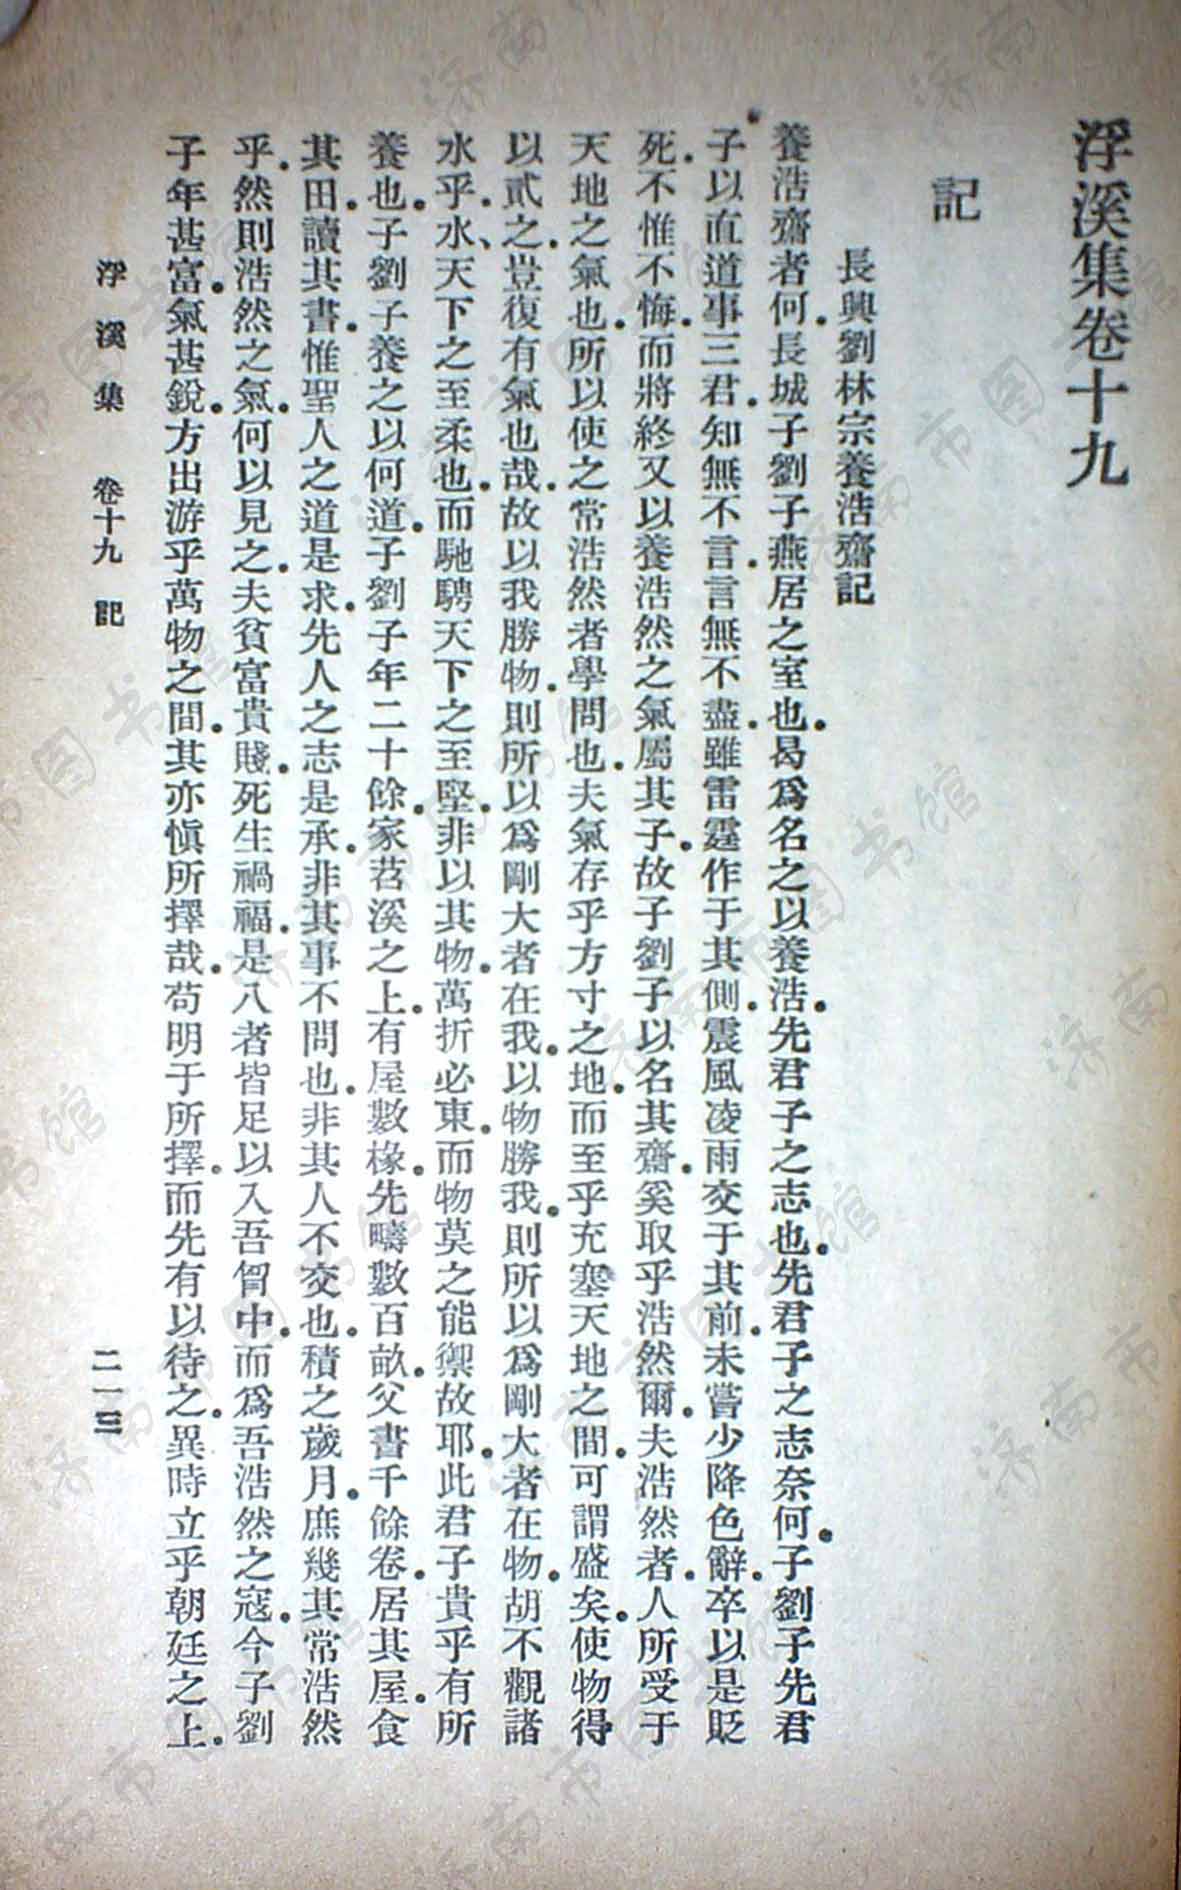 浮溪集卷十九
記
長興劉林宗養浩齋記
養浩齋者何。長城子劉子燕居之室也。曷爲名之以養浩。先君子之志也。先君子之志奈何。子劉子先君
子以直道事三君。知無不言。言無不盡。雖雷霆作于其側。震風凌雨交于其前。未嘗少降色辭。卒以是貶
死。不惟不悔。而將終又以養浩然之氣屬其子。故子劉子以名其齋。奚取乎浩然爾。夫浩然者。人所受于
天地之氣也。所以使之常浩然者學問也。夫氣存乎方寸之地。而至乎充塞天地之間。可謂盛矣。使物得
以貳之。豈復有氣也哉。故以我勝物。則所以爲剛大者在我。以物勝我。則所以爲剛大者在物。胡不觀諸
水乎。水、天下之至柔也。而馳騁天下之至堅。非以其物。萬折必東。而物莫之能禦故耶。此君子貴乎有所
養也。子劉子養之以何道。子劉子年二十餘。家苕溪之上。有屋數椽。先疇數百畝。父書千餘卷。居其屋。食
其田。讀其書。惟聖人之道是求。先人之志是承。非其事不問也。非其人不交也。積之歲月。庶幾其常浩然
乎。然則浩然之氣。何以見之。夫貧富貴賤。死生禍福。是八者皆足以入吾胷中。而爲吾浩然之寇。今子劉
子年甚富。氣甚銳。方出游乎萬物之間。其亦愼所擇哉。苟明于所擇。而先有以待之。異時立乎朝廷之上。
浮溪集 卷十九 記 二一三
济南市图书馆